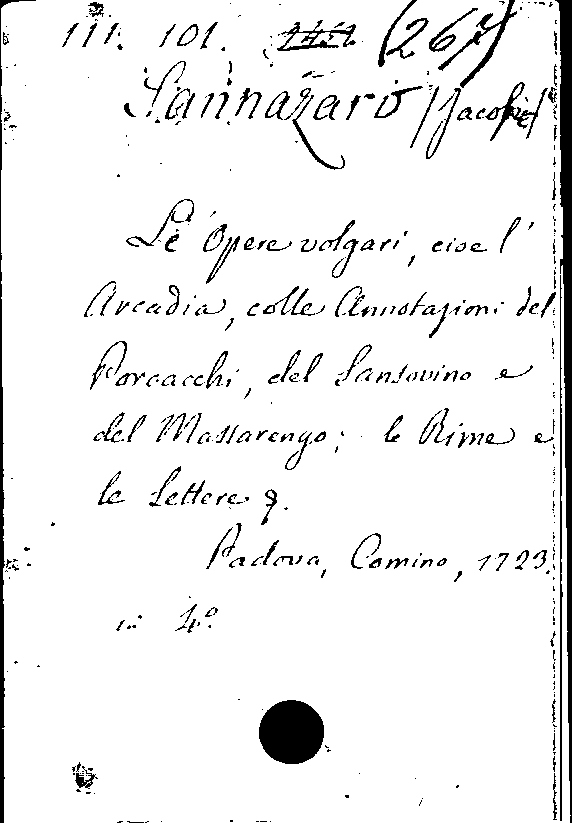 111. 101. (267)
Sannazaro (Jacopo)
Le Opere volgari, cioe l'
Arcadia, colle Annotazioni del
Porcacchi, del Sansovino e
del Massarengo; le Rime e
le Lettere &.
Padova, Comino, 1723.
in 4º.